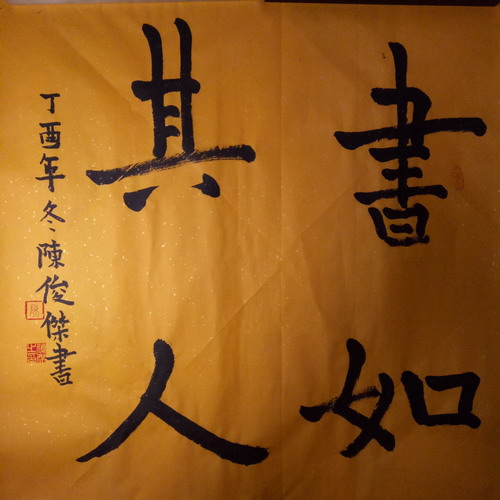 書如
其人
丁酉年冬陳俊傑書